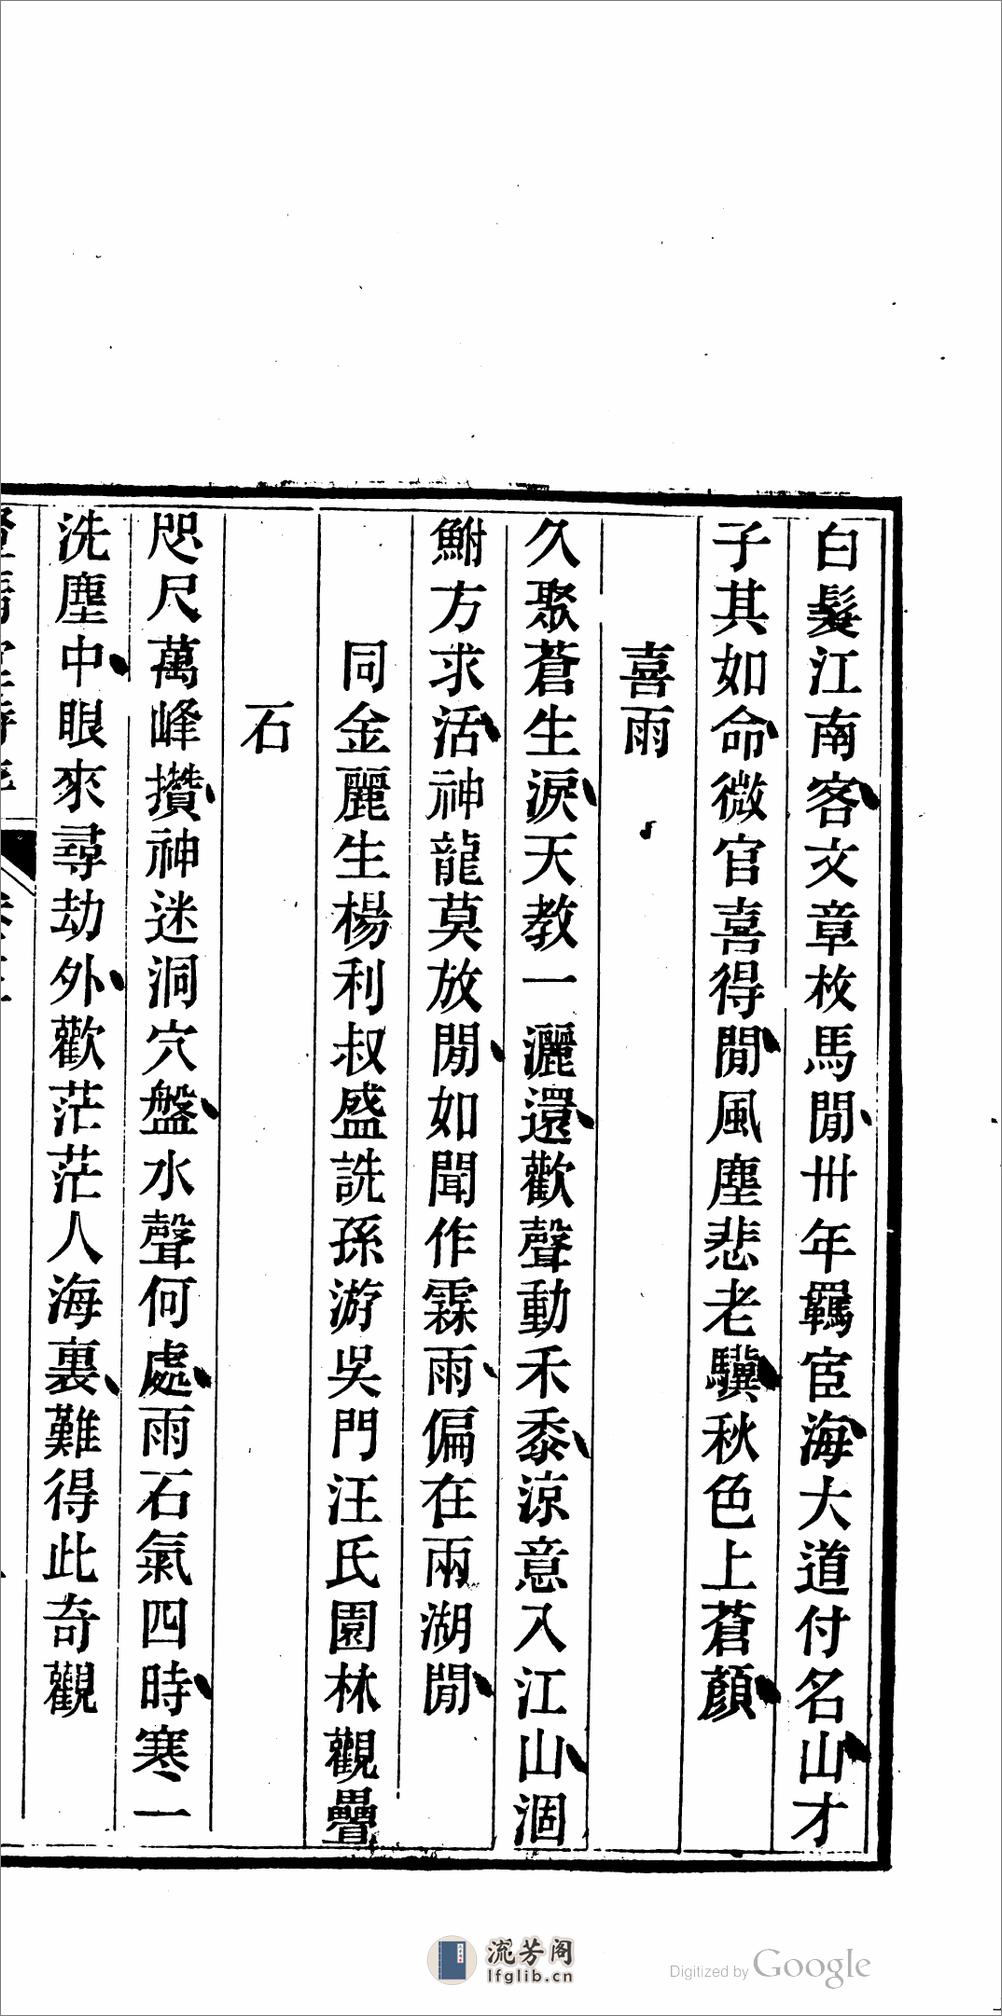 白髮江南客文章枚馬閒卅年羈宦海大道付名山才
子其如命微官喜得閒風塵悲老驥秋色上蒼顏
喜雨
久聚蒼生淚天教一灑還歡聲動禾黍涼意入江山涸
鮒方求活神龍莫放閒如聞作霖雨偏在兩湖閒
同金麗生楊利叔盛詵孫游吳門汪氏園林觀疊
石
咫尺萬峰攢神迷洞穴盤水聲何處雨石氣四時寒一
洗塵中眼來尋劫外歡茫茫人海裏難得此奇觀
流芳阁
lfglib.cn
Digitized by Google